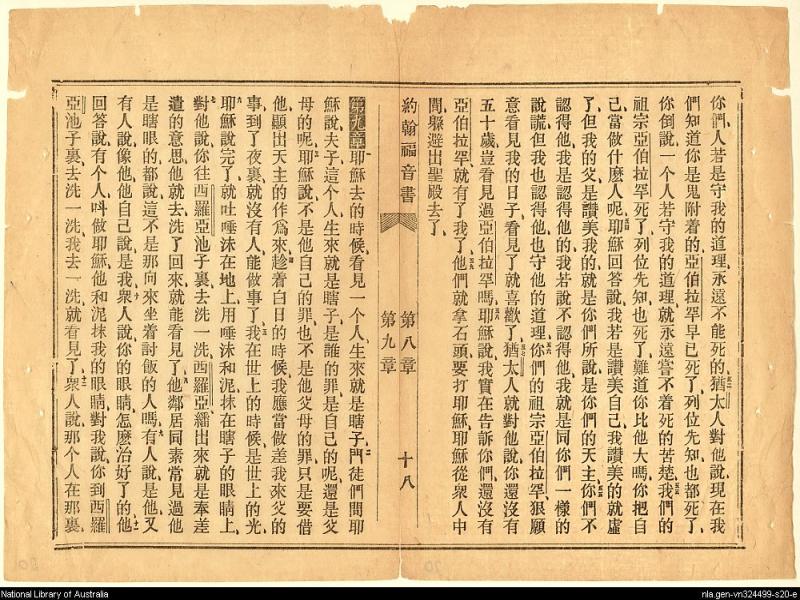 你們人若是守我的道理、永遠不能死的、猶太人對他說、現在我
們知道你是鬼附着的、亞伯拉罕早已死了、列位先知也都死了、
你倒說一個人若守我的道理、就永遠嘗不着死的苦楚、我們的
祖宗亞伯拉罕死了、列位先知也死了、難道你比他大嗎、你把自
己當做什麼人呢、耶穌回答說、我若是讚美自己、我讚美的就虛
了、但我的父是讚美我的、就是你們所說是你們的天主、你們不
認得他、我是認得他的、我若說不認得他、我就是同你們一樣的
說謊、但我也認得他、也守他的道理、你們的祖宗亞伯拉罕、狠願
意看見我的日子、看見了就喜歡了、猶太人就對他說、你還沒有
五十歲、豈看見過亞伯拉罕嗎、耶穌說、我實在告訴你們、還沒有
亞伯拉罕、就有了我了、他們就拿石頭要打耶穌、耶穌從衆人中
間躱避出聖殿去了、
約翰福音書 第八章 第九章 十八
第九章 耶穌去的時候、看見一個人生來就是瞎子、門徒們問耶
穌說、夫子、這個人生來就是瞎子、是誰的罪、是自己的呢、還是父
母的呢、耶穌說、不是他自己的罪、也不是他父母的罪、只是要借
他顯出天主的作為來、趁着白日的時候、我應當做差我來父的
事、到了夜裏就沒有人能做事了、我在世上的時候、是世上的光、
耶穌說完了、就吐唾沫在地上、用唾沫和泥抹在瞎子的眼睛上、
對他說、你往西羅亞池子裏去洗一洗、西羅亞繙出來就是奉差
遣的意思、他就去洗了、回來就能看見了、他鄰居同素常見過他
是瞎眼的、都說、這不是那向來坐着討飯的人嗎、有人說是他、又
有人說像他、他自己說是我、衆人說、你的眼睛怎麼治好了的、他
回答說、有個人呌做耶穌、他和泥抹我的眼睛、對我說、你到西羅
亞池子裏去洗一洗、我去一洗就看見了、衆人說、那個人在那裏、
National Library of Australia
nla.gen-vn324499-s20-e